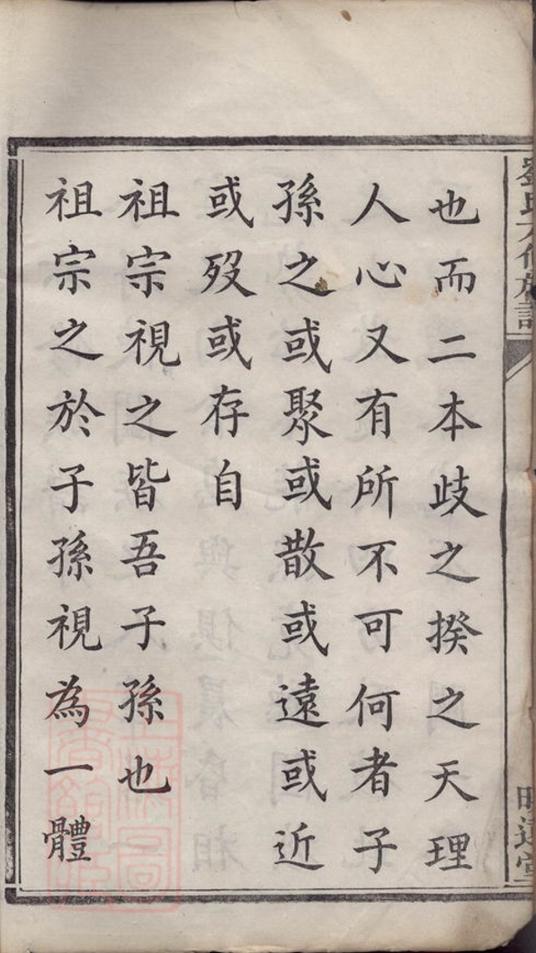 也而二本歧之揆之天理
人心又有所不可何者子
孫之或聚或散或遠或近
或歿或存自
祖宗視之皆吾子孫也
祖宗之於子孫視為一體